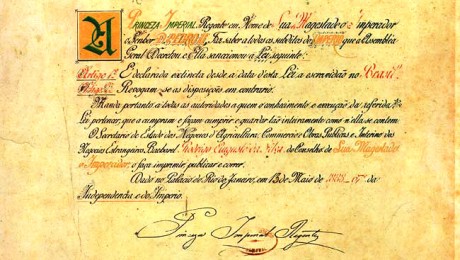 A Princeza Imperial Regente em Nome de Sua Magestade o Imperador
o Senhor D. Pedro II, Faz saber a todos os subditos do Imperio que a Assembléa
Geral Decretou e Ella sanccionou a Lei seguinte:
Artigo 1º É declarada extincta desde a data d'esta Lei a escravidão no Brazil.
Artigo 2º Revogam-se as disposições em contrario.
Manda portanto a todas as autoridades a quem o conhecimento e execução da referida
Lei pertencer, que a cumpram e façam cumprir e guardar tão inteiramente como n'ella se contem.
O Secretario de Estado dos Negocios d'Agricultura, Commercio e Obras Publicas e Interino dos
Negocios Estrangeiros, Bacharel Rodrigo Augusto da Silva, do Conselho de Sua Magestade
o Imperador, o faça imprimir, publicar e correr.
Dado no Palacio do Rio de Janeiro, em 13 de Maio de 1888, 67º da
Independencia e do Imperio.
Princeza Imperial Regente